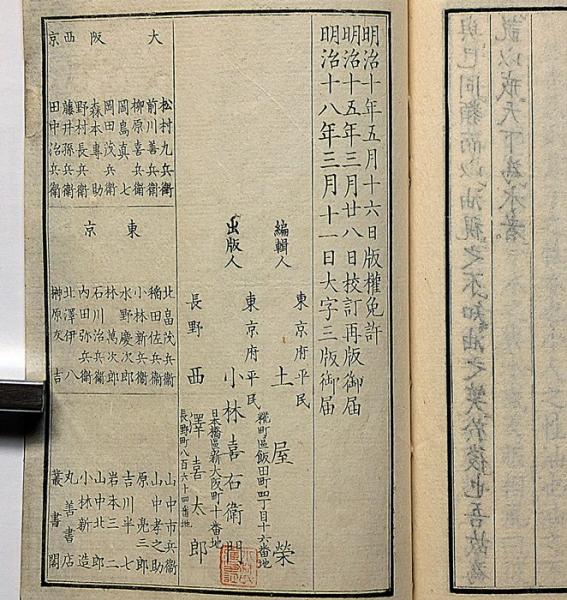 明治十年五月十六日版權免許
明治十五年三月廿八日校訂再版御届
明治十八年三月十一日大字三版御届
東京府平民
編輯人 土屋榮
麹町區飯田町四丁目十六番地
東京府平民
出版人 小林喜右衛門
日本橋區新大阪町十番地
長野 西澤喜太郎
長野町八百六十四番地
大阪
松村九兵衛
前川善兵衛
柳原喜兵衛
岡島真七
岡田茂兵衛
森本專助
野村長兵衛
西京
藤井孫兵衛
田中治兵衛
東京
北畠茂兵衛
稲田佐兵衛
小林新兵衛
水野慶次郎
林萬次郎
石川治兵衛
内田弥兵衛
北澤伊八
榊原友吉
山中市兵衛
山中孝之助
原亮三郎
吉川半七
岩本三二
山中北郎
小林新造
丸善書店
叢書閣